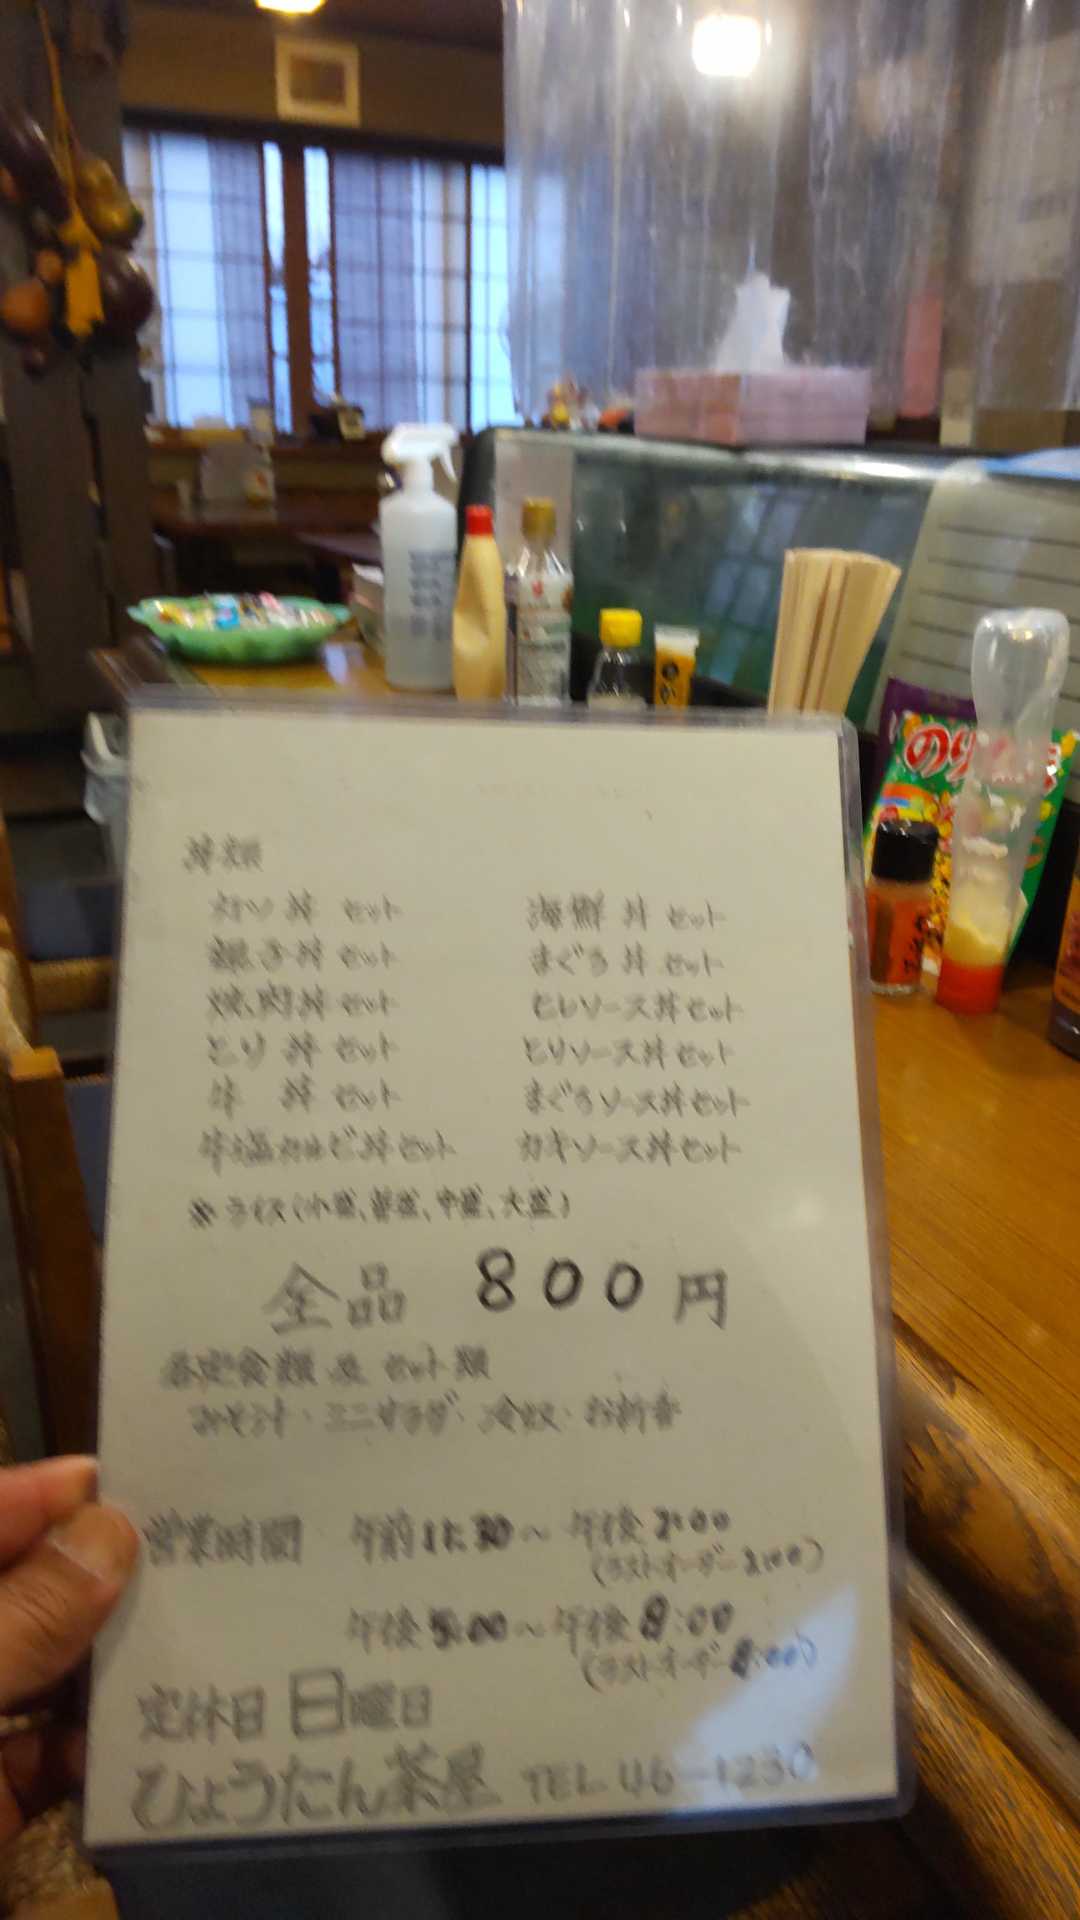 丼類
カツ丼 セット
親子丼 セット
焼肉丼 セット
とり丼 セット
牛丼 セット
牛塩カルビ丼セット
海鮮丼 セット
まぐろ丼 セット
ヒレソース丼セット
とりソース丼セット
まぐろソース丼セット
カキソース丼セット
※ライス(小盛、普盛、中盛、大盛)
全品 800円
各定食類 セット類
みそ汁・ミニサラダ・冷奴・お新香
営業時間 午前11:30〜午後2:00
(ラストオーダー2:00)
午後5:00〜午後8:00
(ラストオーダー8:00)
定休日 日曜日
ひょうたん茶屋 TEL 46-1230